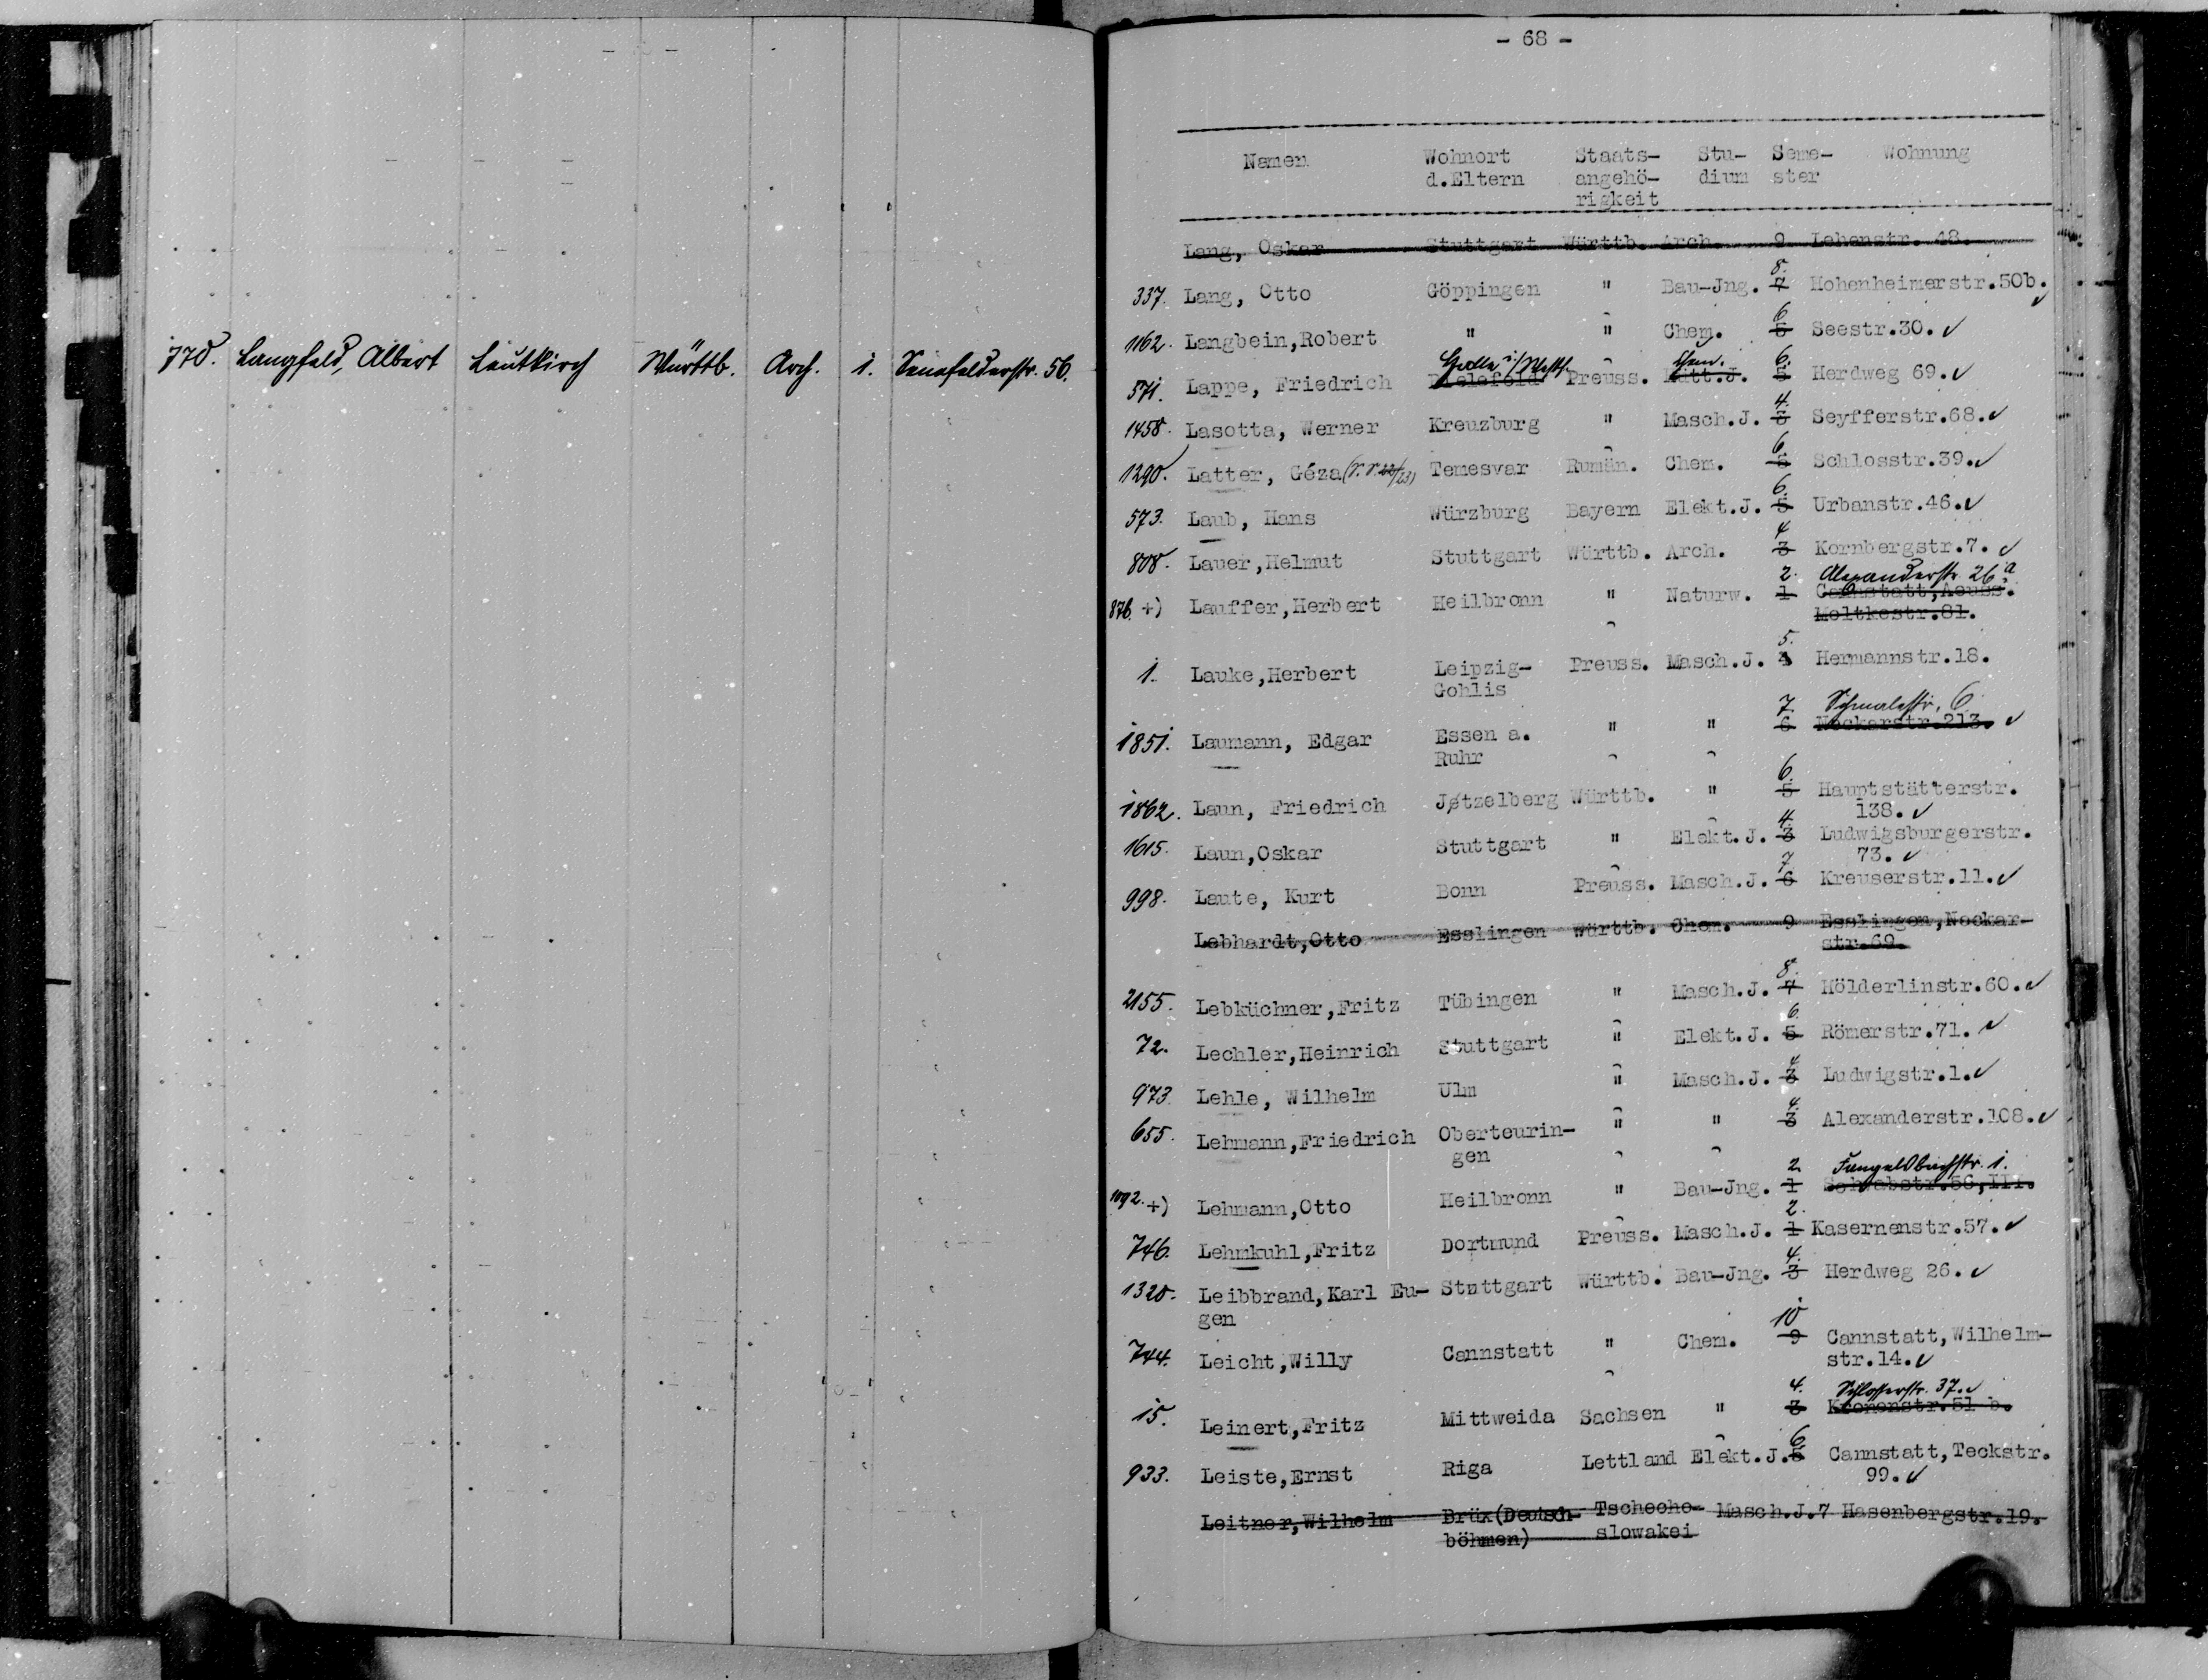 778. Langfeld, Albert Leutkirch Württb. Arch. 1. Senefelderstr. 56.
- 68 -
Namen Wohnort Staats- Stu- Seme- Wohnung
d.Eltern angehö- dium ster
rigkeit
Lang, Oskar Stuttgart Württb. Arch. 9 Lehenstr. 48.
8.
337. Lang, Otto Göppingen " Bau-Jng. 7 Hohenheimerstr.50b.
6
1162. Langbein,Robert " " Chem. 5 Seestr.30. ✓
Halle i/Westf. Chem. 6.
571. Lappe, Friedrich Bielefeld Preuss. Hütt.J. 5 Herdweg 69. ✓
4.
1458. Lasotta, Werner Kreuzburg " Masch.J. 3 Seyfferstr.68. ✓
6
1290. Latter, Géza (S.S.22/23) Temesvar Rumän. Chem. 5 Schlosstr.39. ✓
6.
573. Laub, Hans Würzburg Bayern Elekt.J. 5 Urbanstr.46. ✓
4
808. Lauer,Helmut Stuttgart Württb. Arch. 3 Kornbergstr.7. ✓
2. Alexanderstr. 26a
876. +) Lauffer,Herbert Heilbronn " Naturw. 1 Cannstatt,Aeuss.
Moltkestr.81.
5.
1. Lauke,Herbert Leipzig- Preuss. Masch.J. 4 Hermannstr.18.
Gohlis
7. Schmalestr. 6
1851. Laumann, Edgar Essen a. " " 6 Neckarstr.213. ✓
Ruhr
6.
1862. Laun, Friedrich Jetzelberg Württb. " 5 Hauptstätterstr.
138. ✓
4.
1615. Laun,Oskar Stuttgart " Elekt.J. 3 Ludwigsburgerstr.
73. ✓
7
998. Laute, Kurt Bonn Preuss. Masch.J. 6 Kreuserstr.11. ✓
Lebhardt,Otto Esslingen Württb. Chem. 9 Esslingen,Neckar-
str.69.
8.
2155. Lebküchner,Fritz Tübingen " Masch.J. 7 Hölderlinstr.60. ✓
6.
72. Lechler,Heinrich Stuttgart " Elekt.J. 5 Römerstr.71. ✓
4
973. Lehle, Wilhelm Ulm " Masch.J. 3 Ludwigstr.1. ✓
4.
655. Lehmann,Friedrich Oberteurin- " " 3 Alexanderstr.108. ✓
gen
2. Fangelsbachstr. 1.
1092. +) Lehmann,Otto Heilbronn " Bau-Jng. 1 Schwabstr.56,III.
2.
746. Lehmkuhl,Fritz Dortmund Preuss. Masch.J. 1 Kasernenstr.57. ✓
4.
1320. Leibbrand,Karl Eu- Stuttgart Württb. Bau-Jng. 3 Herdweg 26. ✓
gen
10
744. Leicht,Willy Cannstatt " Chem. 9 Cannstatt,Wilhelm-
str.14. ✓
4. Schlosserstr. 37. ✓
15. Leinert,Fritz Mittweida Sachsen " 3 Kronenstr.51 b.
6
933. Leiste,Ernst Riga Lettland Elekt.J. 5 Cannstatt,Teckstr.
99. ✓
Leitner,Wilhelm Brüx(Deutsch- Tschecho- Masch.J.7 Hasenbergstr.19.
böhmen) slowakei